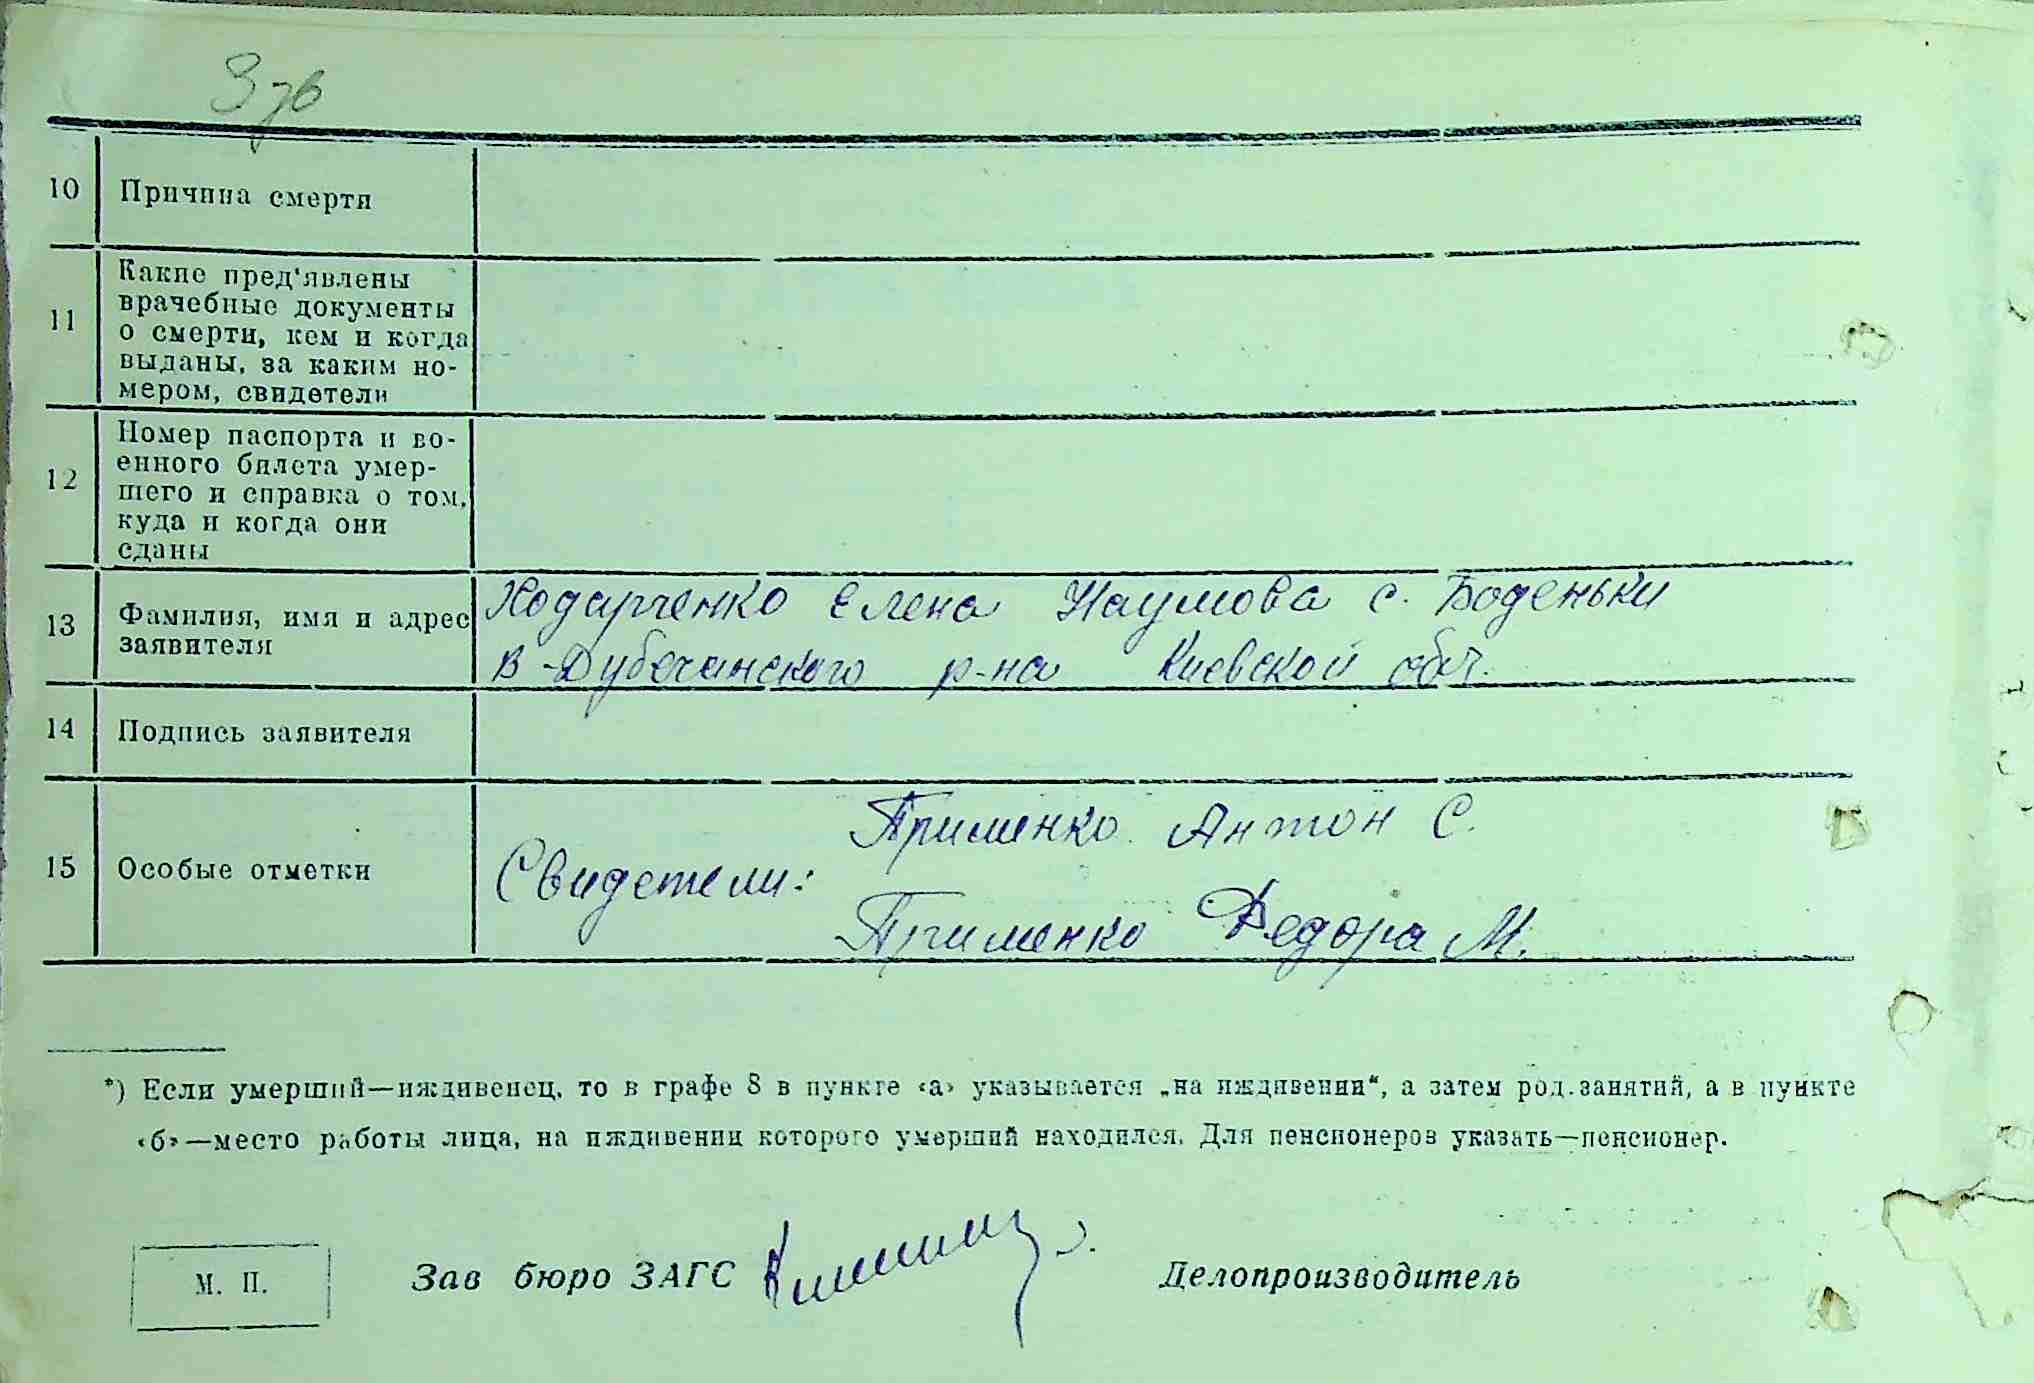 10 Причина смерти
11 Какие пред'явлены
врачебные документы
о смерти, кем и когда
выданы, за каким но-
мером, свидетели
12 Номер паспорта и во-
енного билета умер-
шего и справка о том,
куда и когда они
сданы
13 Фамилия, имя и адрес
заявителя
Ходарченко Елена Наумова с. Боденьки
В-Дубечанского р-на Киевской обл.
14 Подпись заявителя
15 Особые отметки
Свидетели:
Применко Антон С.
Применко Федора М.
*) Если умерший—иждивенец, то в графе 8 в пункте «а» указывается „на иждивении“, а затем род занятий, а в пункте
«б»—место работы лица, на иждивении которого умерший находился. Для пенсионеров указать—пенсионер.
М. П. Зав бюро ЗАГС Делопроизводитель